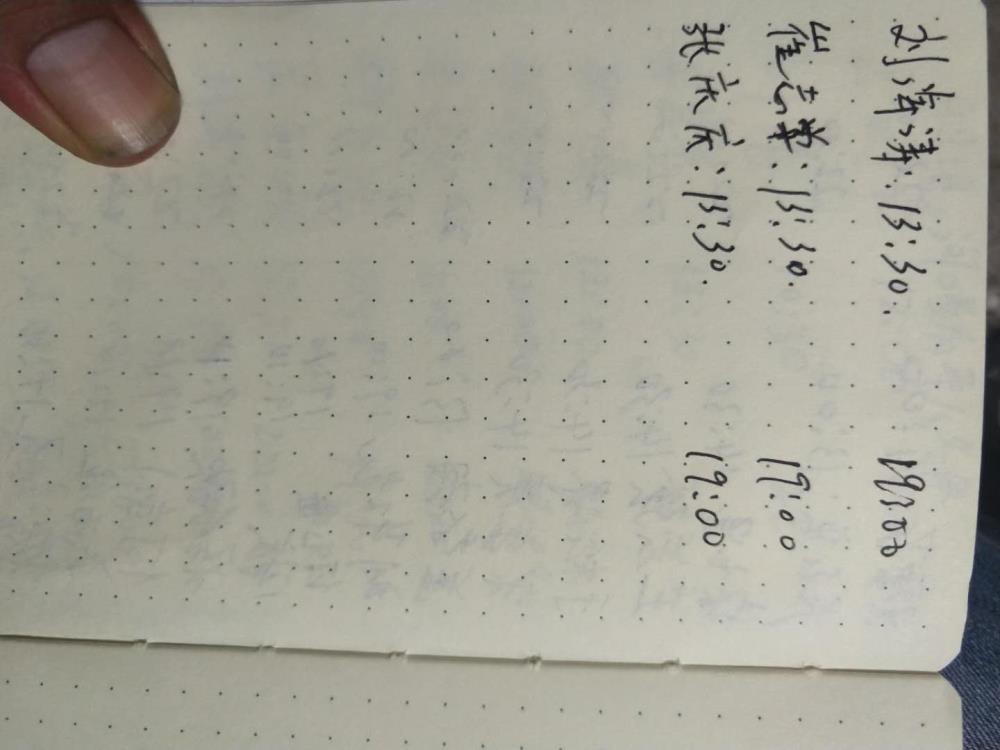 刘涛涛：13:30. 19:00
崔志荣：13:30. 19:00
张庆庆：13:30. 19:00